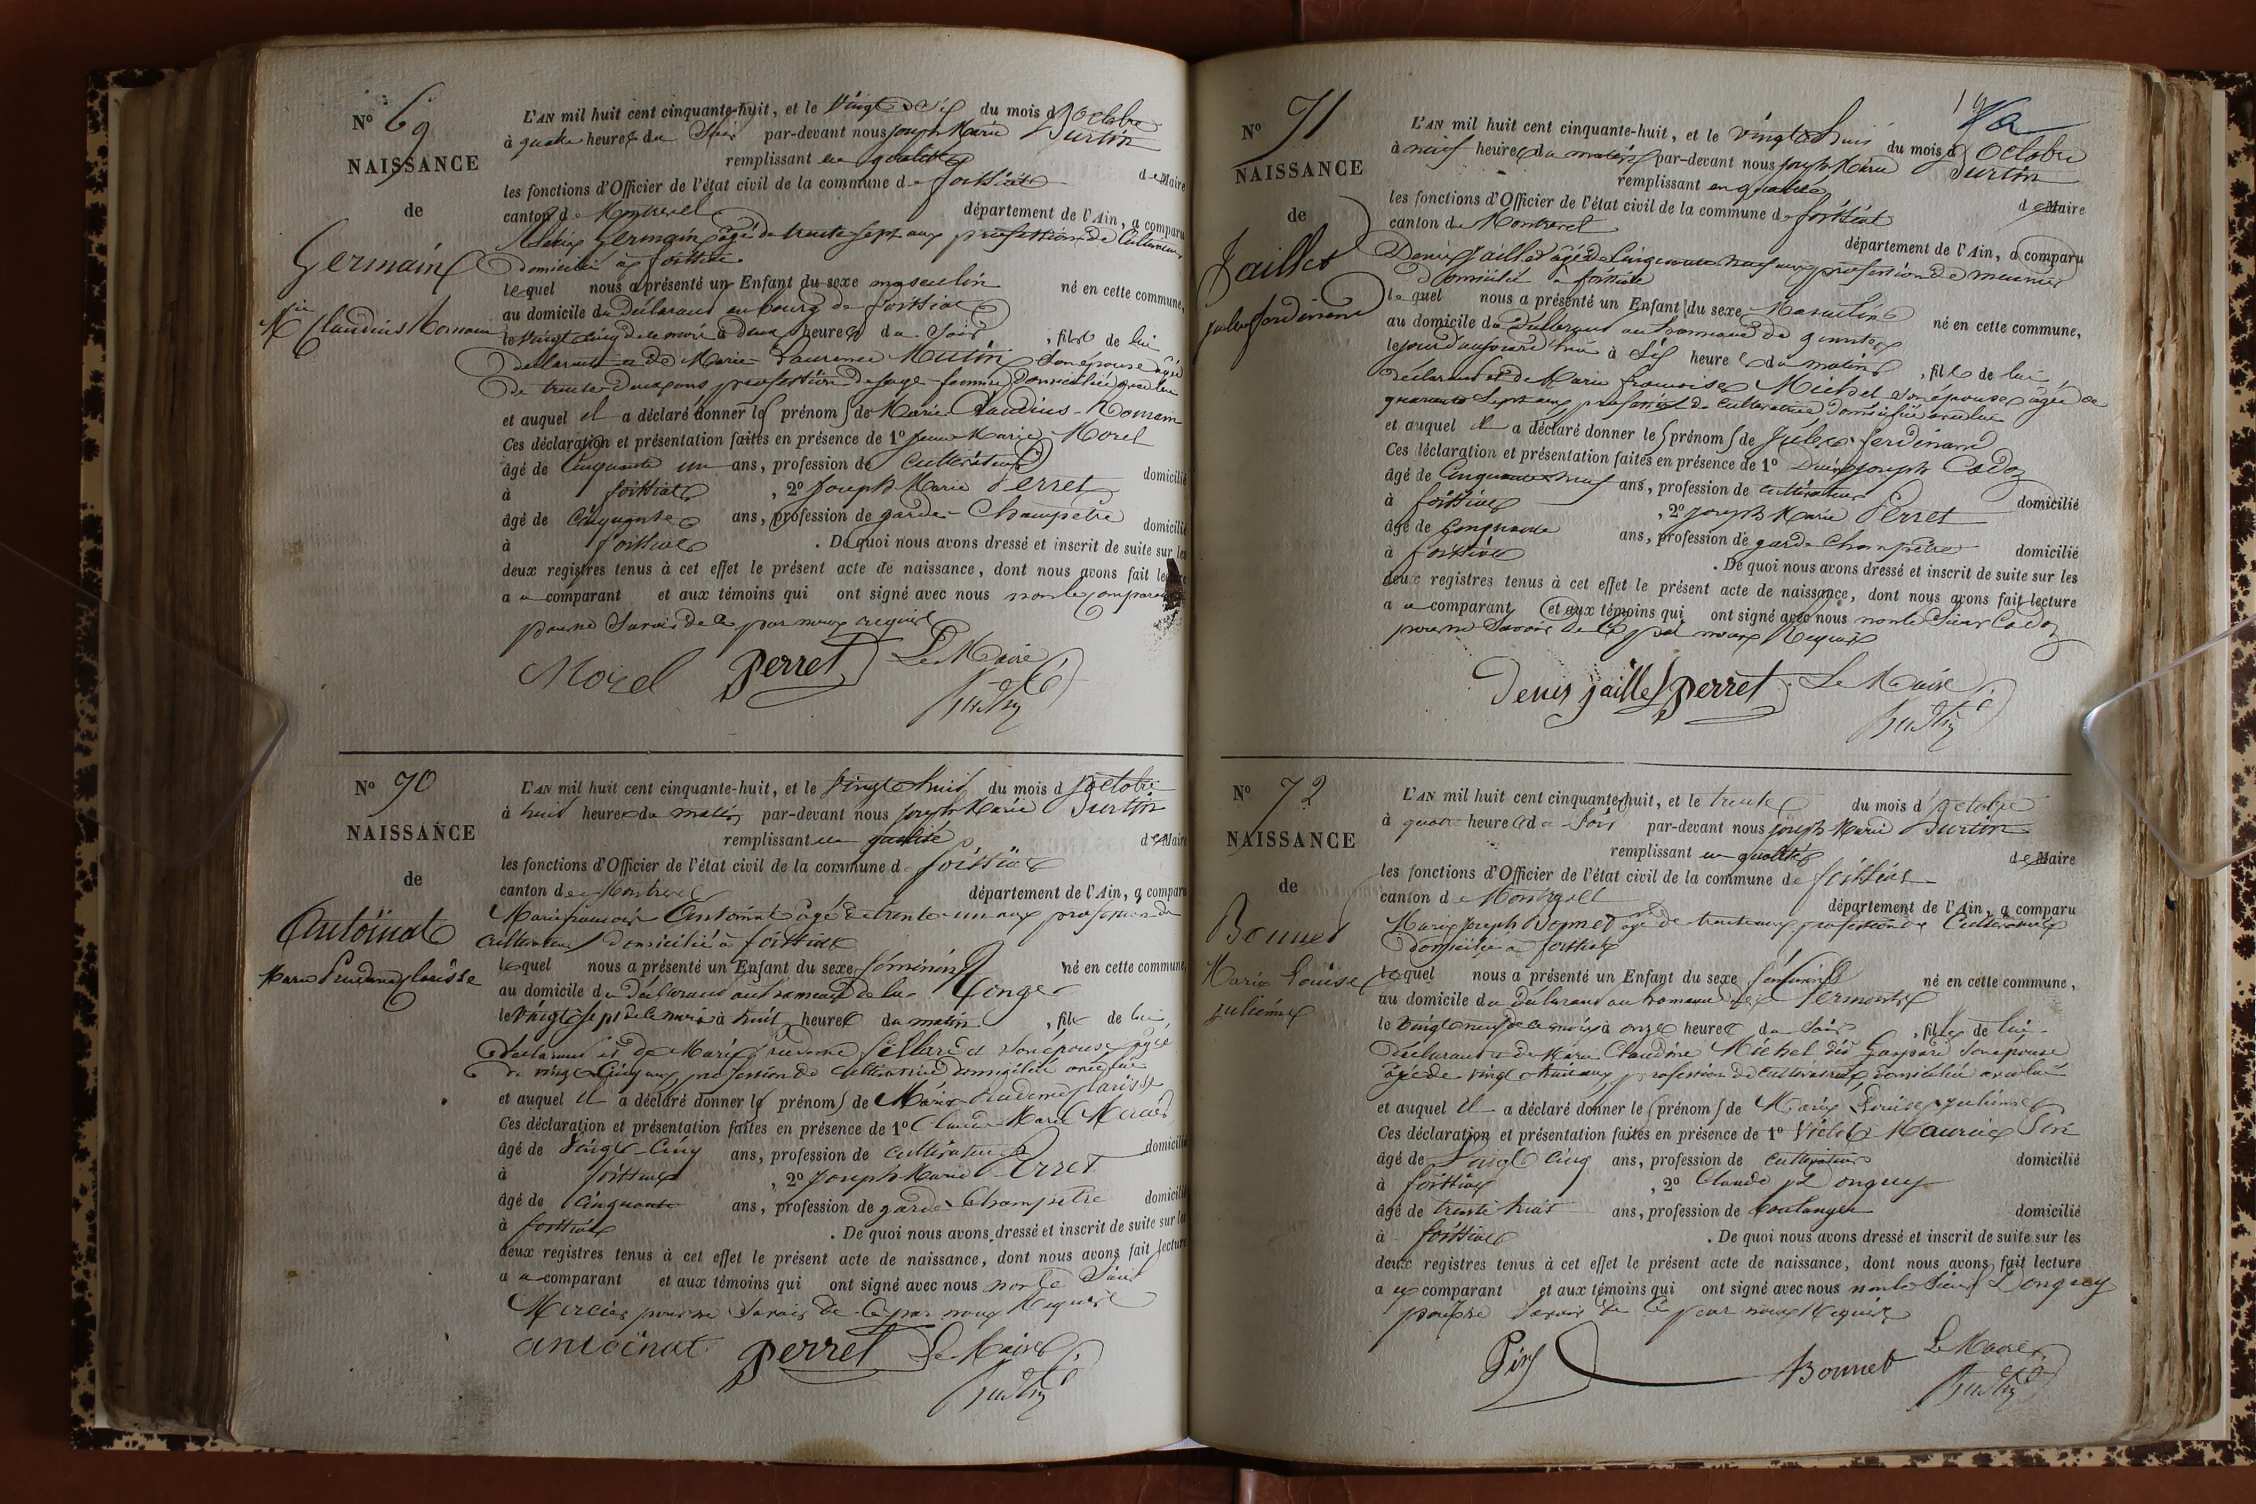 N° 69
NAISSANCE
de
Germain
Mie Claudius Romain
L'AN mil huit cent cinquante-huit, et le vingt six du mois d'octobre
à quatre heures du Soir par-devant nous joseph Marie Burtin
remplissant en qualité de Maire
les fonctions d'Officier de l'état civil de la commune de foissiat
canton de Montrevel département de l'Ain, a comparu
Germain agé de trente sept ans profession de Cultivateur
domicilié à foissiat
lequel nous a présenté un Enfant du sexe masculin né en cette commune,
au domicile du déclarant au bourg de foissiat
le vingt cinq de ce mois à deux heures du Soir, fils de lui
déclarant et de Marie Laurence Mutin Son épouse agée
de trente deux ans profession de sage-femme domiciliée avec lui
et auquel il a déclaré donner les prénoms de Marie Claudius-Romain
Ces déclaration et présentation faites en présence de 1° jean Marie Morel
âgé de Cinquante un ans, profession de cultivateur domicilié
à foissiat, 2° Joseph Marie Perret
âgé de Cinquante ans, profession de garde-Champêtre domicilié
à foissiat. De quoi nous avons dressé et inscrit de suite sur les
deux registres tenus à cet effet le présent acte de naissance, dont nous avons fait lecture
au comparant et aux témoins qui ont signé avec nous non le comparant
pour ne Savoir de ce par nous requis
Morel Perret Le Maire
Burtin
N° 70
NAISSANCE
de
Antoinat
Marie Prudence Clarisse
L'AN mil huit cent cinquante-huit, et le vingt huit du mois d'octobre
à huit heures du matin par-devant nous joseph Marie Burtin
remplissant en qualité de Maire
les fonctions d'Officier de l'état civil de la commune de foissiat
canton de Montrevel département de l'Ain, a comparu
Marie françois Antoinat agé de trente-un ans profession de
cultivateur domicilié à foissiat
lequel nous a présenté un Enfant du sexe féminin né en cette commune,
au domicile du déclarant au hameau de la Ronge
le vingt sept de ce mois à huit heures du matin, fille de lui
déclarant et de Marie Son épouse agée
de vingt Cinq ans profession de cultivatrice domiciliée avec lui
et auquel il a déclaré donner les prénoms de Marie Prudence Clarisse
Ces déclaration et présentation faites en présence de 1° Claude Marie Mercier
âgé de vingt-Cinq ans, profession de cultivateur domicilié
à foissiat, 2° Joseph Marie Perret
âgé de Cinquante ans, profession de garde Champetre domicilié
à foissiat. De quoi nous avons dressé et inscrit de suite sur les
deux registres tenus à cet effet le présent acte de naissance, dont nous avons fait lecture
au comparant et aux témoins qui ont signé avec nous non le Sieur
Mercier pour ne Savoir de ce par nous Requis
antoinat Perret Le Maire
Burtin
N° 71
NAISSANCE
de
Jaillet
jules ferdinand
L'AN mil huit cent cinquante-huit, et le vingt huit du mois d'octobre
à neuf heures du matin par-devant nous joseph Marie Burtin
remplissant en qualité de Maire
les fonctions d'Officier de l'état civil de la commune de foissiat
canton de Montrevel département de l'Ain, a comparu
Denis Jaillet agé de Cinquante neuf ans profession de meunier
domicilié à foissiat
lequel nous a présenté un Enfant du sexe Masculin né en cette commune,
au domicile du déclarant au hameau de
le jour d'aujourd'hui à Six heures du matin, fils de lui
déclarant et de Marie françoise Michel son épouse agée de
quarante Sept ans profession de cultivatrice domiciliée avec lui
et auquel il a déclaré donner les prénoms de Jules ferdinand
Ces déclaration et présentation faites en présence de 1° Denis joseph Cadoz
âgé de Cinquante neuf ans, profession de cultivateur domicilié
à foissiat, 2° joseph Marie Perret
âgé de Cinquante ans, profession de garde Champêtre domicilié
à foissiat. De quoi nous avons dressé et inscrit de suite sur les
deux registres tenus à cet effet le présent acte de naissance, dont nous avons fait lecture
au comparant et aux témoins qui ont signé avec nous non le Sieur Cadoz
pour ne Savoir de ce par nous Requis
Denis jaillet Perret Le Maire
Burtin
N° 72
NAISSANCE
de
Bonnet
Marie Louise
julienne
L'AN mil huit cent cinquante-huit, et le trente du mois d'octobre
à quatre heures du Soir par-devant nous joseph Marie Burtin
remplissant en qualité de Maire
les fonctions d'Officier de l'état civil de la commune de foissiat
canton de Montrevel département de l'Ain, a comparu
Marie Joseph Bonnet agé de trente ans profession de Cultivateur
domicilié à foissiat
lequel nous a présenté un Enfant du sexe féminin né en cette commune,
au domicile du déclarant au hameau de
le vingt neuf de ce mois à onze heures du Soir, fille de lui
déclarant et de Marie Claudine Michel dit Gaspard Son épouse
agée de vingt huit ans profession de cultivatrice domiciliée avec lui
et auquel il a déclaré donner les prénoms de Marie Louise julienne
Ces déclaration et présentation faites en présence de 1° Victor Maurice
âgé de vingt cinq ans, profession de cultivateur domicilié
à foissiat, 2° Claude Longuy
âgé de trente huit ans, profession de boulanger domicilié
à foissiat. De quoi nous avons dressé et inscrit de suite sur les
deux registres tenus à cet effet le présent acte de naissance, dont nous avons fait lecture
au comparant et aux témoins qui ont signé avec nous non le Sieur Longuy
pour ne Savoir de ce par nous Requis
Bonnet Le Maire
Burtin